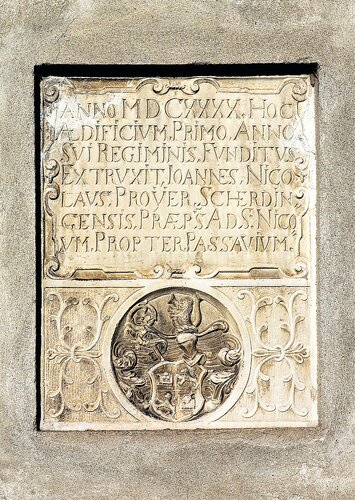 ANNO M DCXXXX. HOC
ÆDIFICIVM, PRIMO, ANNO
SVI REGIMINIS, FVNDITVS
EXTRVXIT, IOANNES, NICO
LAVS, PROVER, SCHERDIN
GENSIS, PRÆPS AD S: NICO
VM, PROPTER, PASSAVIVM,